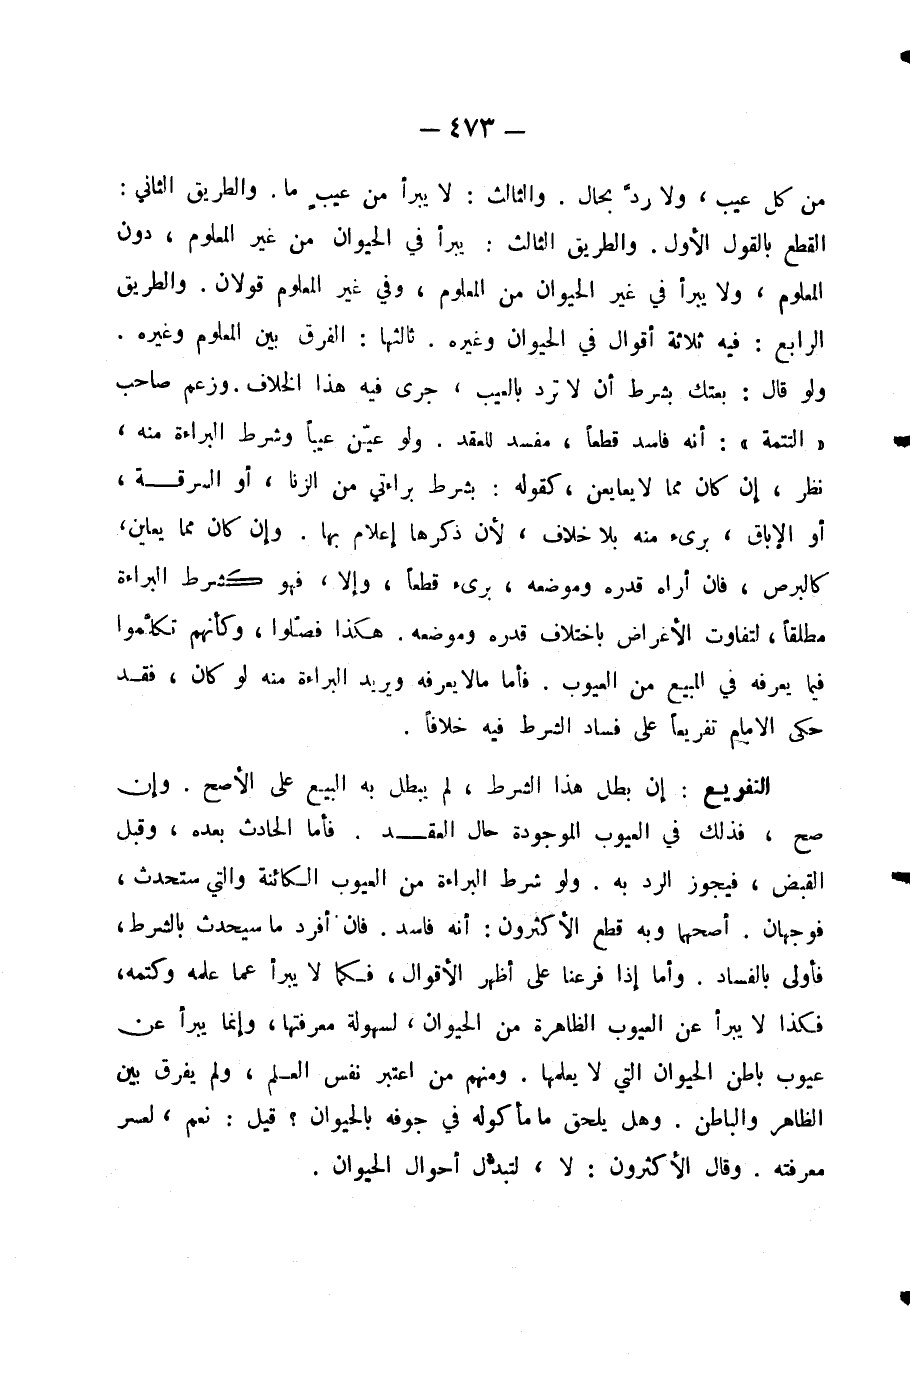 — ٤٧٣ —
من كل عيب ، ولا ردَّ بحال . والثالث : لا يبرأ من عيبٍ ما . والطريق الثاني :
القطع بالقول الأول . والطريق الثالث : يبرأ في الحيوان من غير المعلوم ، دون
المعلوم ، ولا يبرأ في غير الحيوان من المعلوم ، وفي غير المعلوم قولان . والطريق
الرابع : فيه ثلاثة أقوال في الحيوان وغيره . ثالثها : الفرق بين المعلوم وغيره .
ولو قال : بعتك بشرط أن لا ترد بالعيب ، جرى فيه هذا الخلاف . وزعم صاحب
« التتمة » : أنه فاسد قطعاً ، مفسد للعقد . ولو عيّن عيباً وشرط البراءة منه ،
نظر ، إن كان مما لايعايعن ، كقوله : بشرط براءتي من الزنا ، أو السرقـــة ،
أو الإباق ، برىء منه بلا خلاف ، لأن ذكرها إعلام بها . وإن كان مما يعاين ،
كالبرص ، فان أراه قدره وموضعه ، برىء قطعاً ، وإلا ، فهو كشرط البراءة
مطلقاً ، لتفاوت الأغراض باختلاف قدره وموضعه . هكذا فصّلوا ، وكأنهم تكلَّموا
فيما يعرفه في المبيع من العيوب . فأما مالايعرفه ويريد البراءة منه لو كان ، فقـد
حكى الامام تفريعاً على فساد الشرط فيه خلافاً .
التفريـع : إن بطل هذا الشرط ، لم يبطل به البيع على الأصح . وإن
صح ، فذلك في العيوب الموجودة حال العقـــد . فأما الحادث بعده ، وقبل
القبض ، فيجوز الرد به . ولو شرط البراءة من العيوب الكائنة والتي ستحدث ،
فوجهان . أصحها وبه قطع الأكثرون : أنه فاسد . فان أفرد ما سيحدث بالشرط ،
فأولى بالفساد . وأما إذا فرعنا على أظهر الأقوال ، فـكما لا يبرأ عما علمه وكتمه ،
فكذا لا يبرأ عن العيوب الظاهرة من الحيوان ، لسهولة معرفتها ، وإنما يبرأ عن
عيوب باطن الحيوان التي لا يعلمها . ومنهم من اعتبر نفس العـلم ، ولم يفرق بين
الظاهر والباطن . وهل يلحق ما مأكوله في جوفه بالحيوان ؟ قيل : نعم ، لعسر
معرفته . وقال الأكثرون : لا ، لتبدُّل أحوال الحيوان .